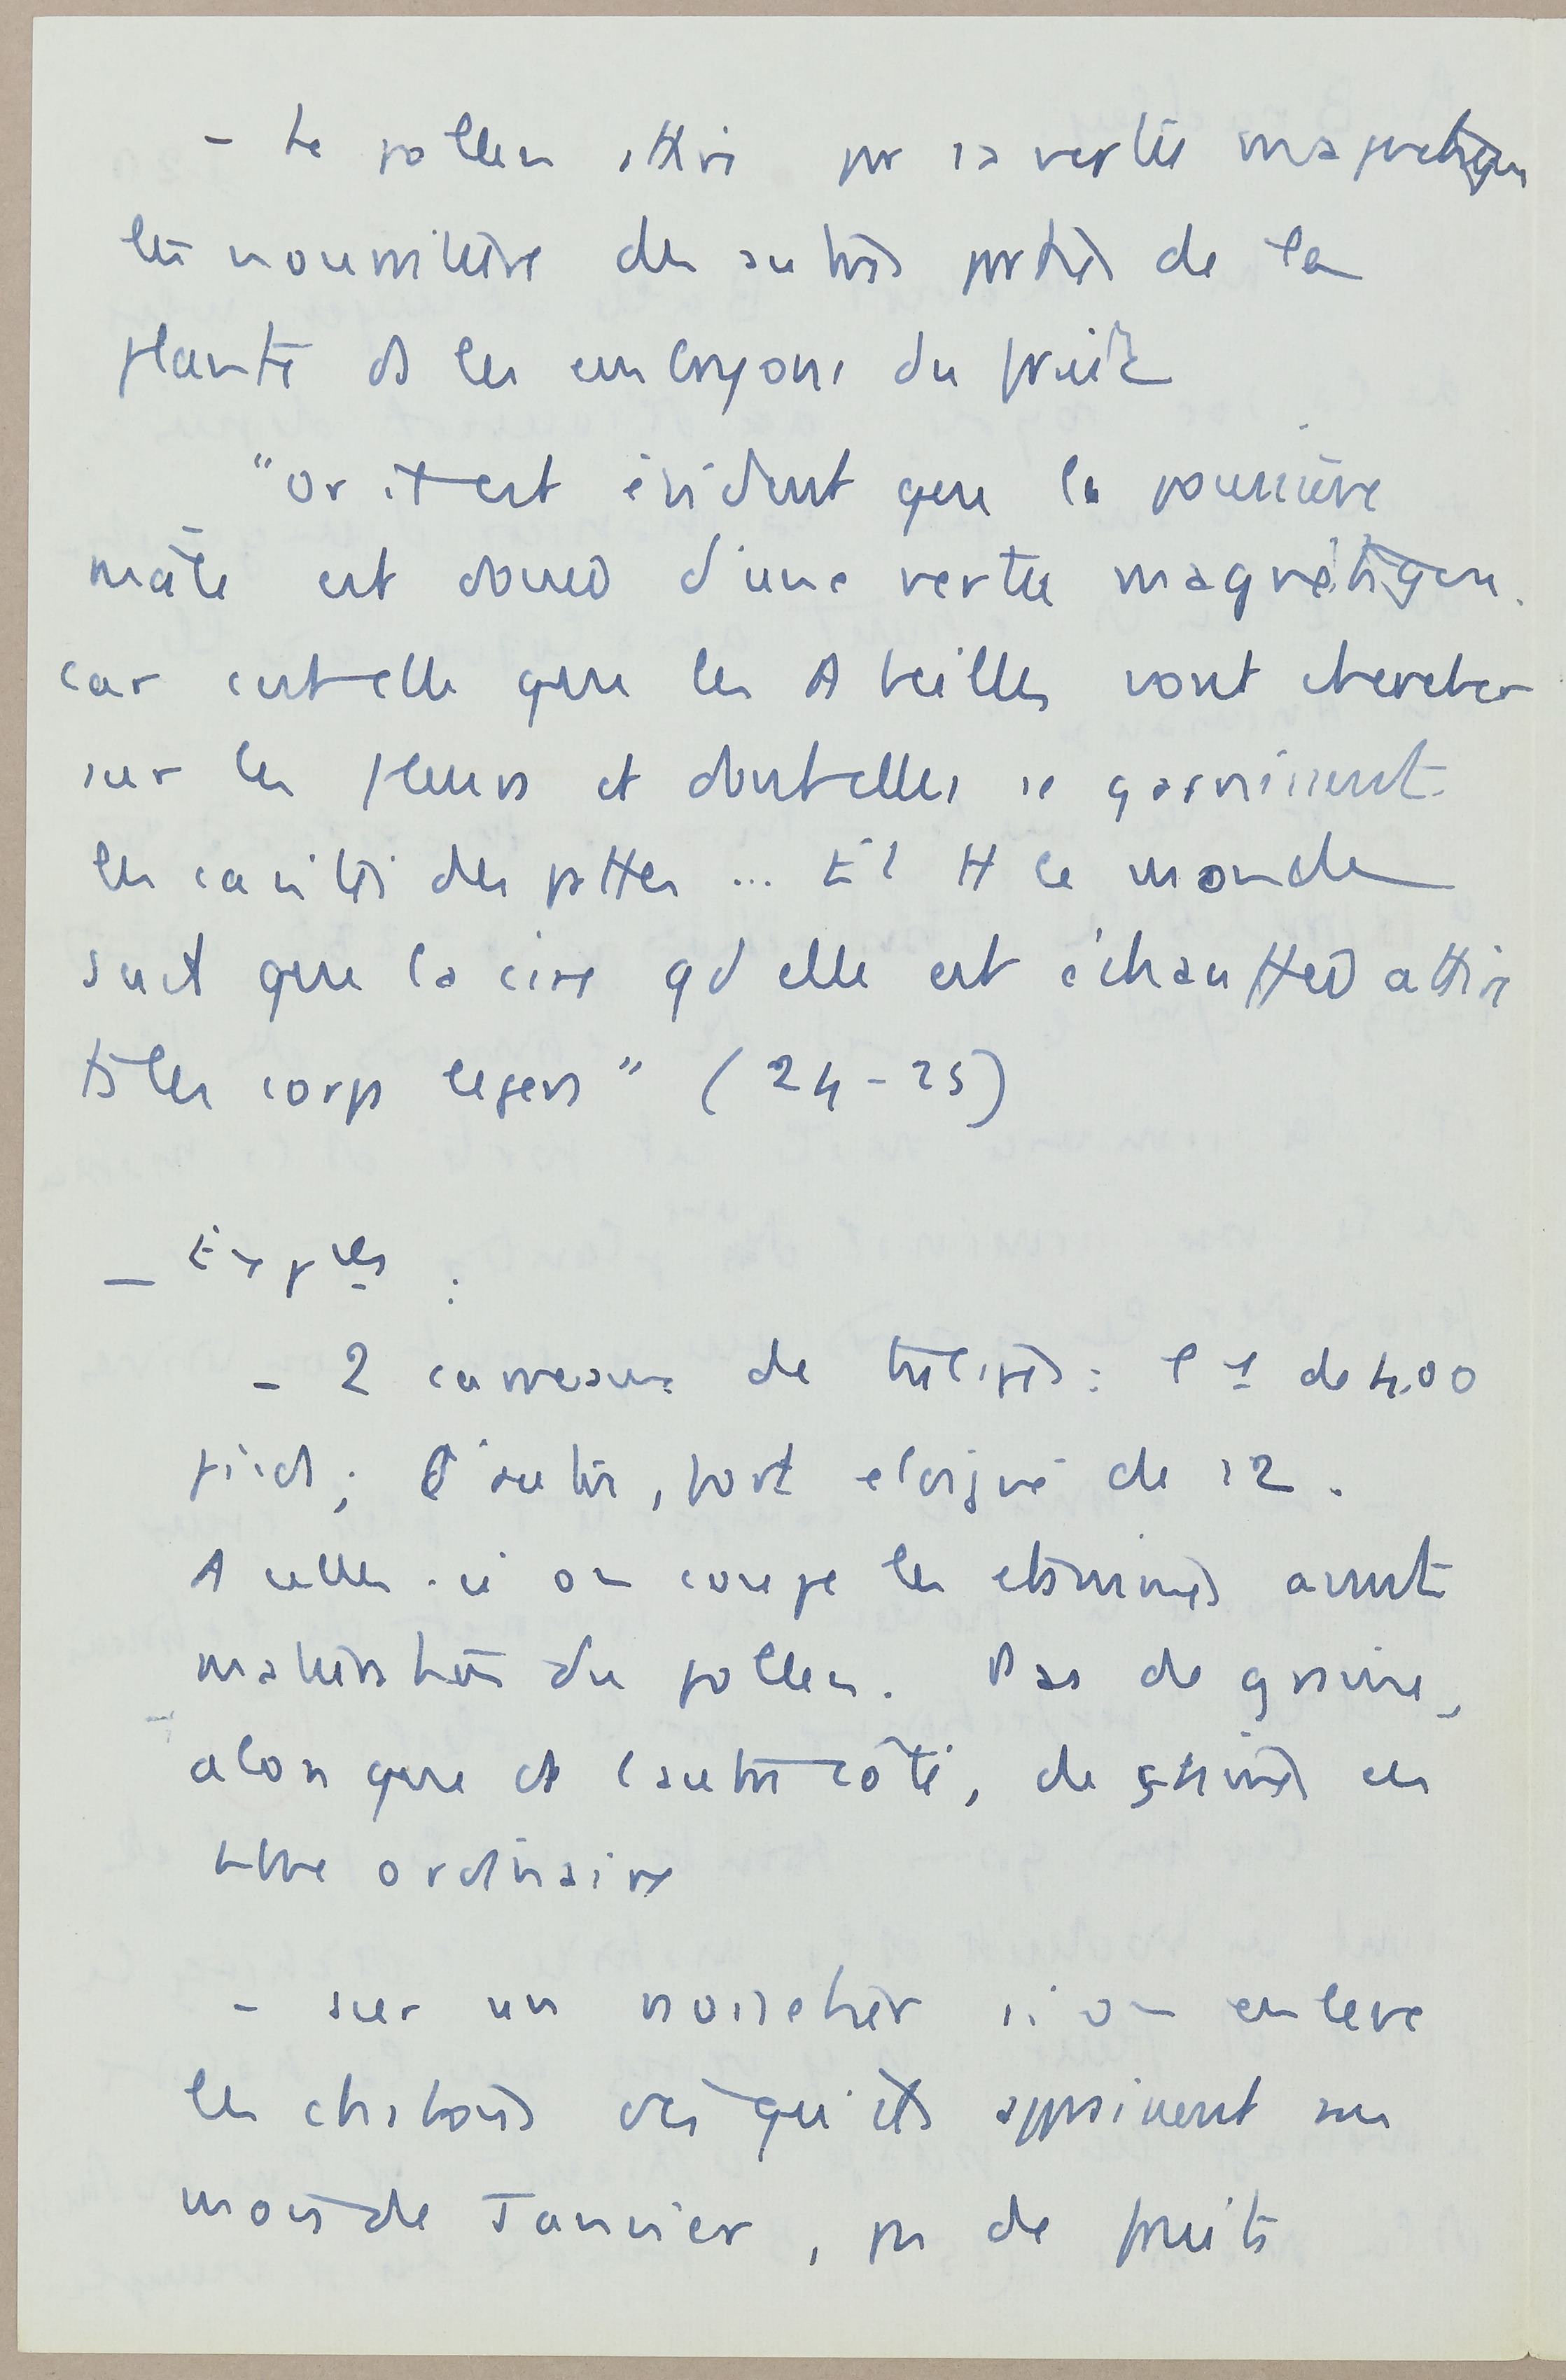 - Le pollen attire par sa vertu magnetique
la nourriture des autres parties de la
plante ds les embryons du fruit
"Or il est évident que la poussière
mâle est douée d'une vertu magnétique.
car c'est elle que les Abeilles vont chercher
sur les fleurs et dont elles se garnissent
les cavités des pattes ... Et tt le monde
sait que la cire qd elle est échauffée attire
ts les corps legers" (24-25)
- Exples :
- 2 carreaux de tulipes : l'1 de 400
pieds ; l'autre, fort eloigné de 12.
A celles-ci on coupe les etamines avant
maturation du pollen. Pas de graine,
alors que ds l'autre côté, des graines en
ordinaire
- sur un noisetier si on enleve
les chatons dès qu'ils apparaissent au
mois de Janvier, pas de fruits